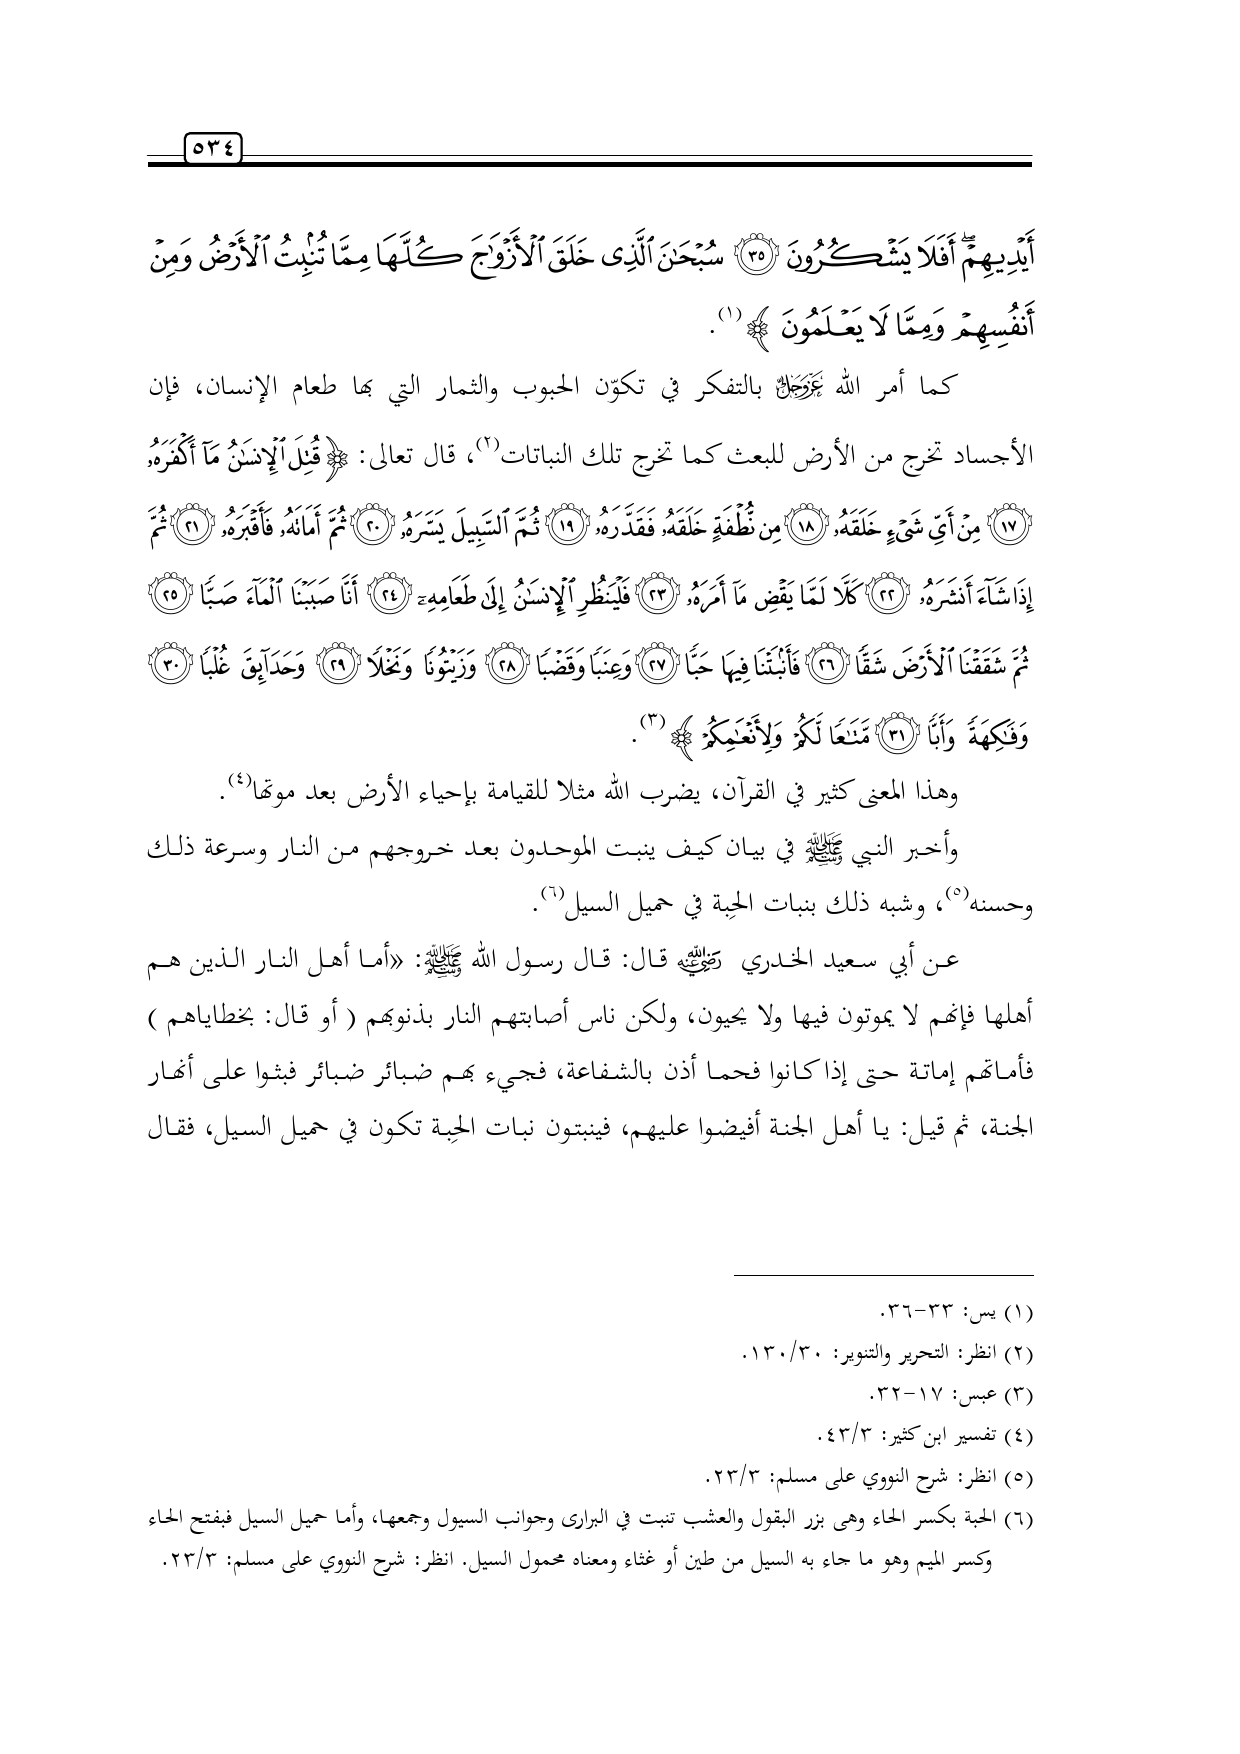 ٥٣٤
أَيْدِيهِمْ ۖ أَفَلَا يَشْكُرُونَ ٣٥ سُبْحَٰنَ ٱلَّذِى خَلَقَ ٱلْأَزْوَٰجَ كُلَّهَا مِمَّا تُنۢبِتُ ٱلْأَرْضُ وَمِنْ
أَنفُسِهِمْ وَمِمَّا لَا يَعْلَمُونَ ﴾(١).
كما أمر الله عَزَّوَجَلَّ بالتفكر في تكوّن الحبوب والثمار التي بها طعام الإنسان، فإن
الأجساد تخرج من الأرض للبعث كما تخرج تلك النباتات(٢)، قال تعالى: ﴿ قُتِلَ ٱلْإِنسَٰنُ مَآ أَكْفَرَهُۥ
١٧ مِنْ أَىِّ شَىْءٍ خَلَقَهُۥ ١٨ مِن نُّطْفَةٍ خَلَقَهُۥ فَقَدَّرَهُۥ ١٩ ثُمَّ ٱلسَّبِيلَ يَسَّرَهُۥ ٢٠ ثُمَّ أَمَاتَهُۥ فَأَقْبَرَهُۥ ٢١ ثُمَّ
إِذَا شَآءَ أَنشَرَهُۥ ٢٢ كَلَّا لَمَّا يَقْضِ مَآ أَمَرَهُۥ ٢٣ فَلْيَنظُرِ ٱلْإِنسَٰنُ إِلَىٰ طَعَامِهِۦٓ ٢٤ أَنَّا صَبَبْنَا ٱلْمَآءَ صَبًّا ٢٥
ثُمَّ شَقَقْنَا ٱلْأَرْضَ شَقًّا ٢٦ فَأَنۢبَتْنَا فِيهَا حَبًّا ٢٧ وَعِنَبًا وَقَضْبًا ٢٨ وَزَيْتُونًا وَنَخْلًا ٢٩ وَحَدَآئِقَ غُلْبًا ٣٠
وَفَٰكِهَةً وَأَبًّا ٣١ مَّتَٰعًا لَّكُمْ وَلِأَنْعَٰمِكُمْ ﴾(٣).
وهذا المعنى كثير في القرآن، يضرب الله مثلا للقيامة بإحياء الأرض بعد موتها(٤).
وأخبر النبي ﷺ في بيان كيف ينبت الموحدون بعد خروجهم من النار وسرعة ذلك
وحسنه(٥)، وشبه ذلك بنبات الحِبة في حميل السيل(٦).
عن أبي سعيد الخدري رضي الله عنه قال: قال رسول الله ﷺ: «أما أهل النار الذين هم
أهلها فإنهم لا يموتون فيها ولا يحيون، ولكن ناس أصابتهم النار بذنوبهم ( أو قال: بخطاياهم )
فأماتهم إماتة حتى إذا كانوا فحما أذن بالشفاعة، فجيء بهم ضبائر ضبائر فبثوا على أنهار
الجنة، ثم قيل: يا أهل الجنة أفيضوا عليهم، فينبتون نبات الحِبة تكون في حميل السيل، فقال
(١) يس: ٣٣-٣٦.
(٢) انظر: التحرير والتنوير: ١٣٠/٣٠.
(٣) عبس: ١٧-٣٢.
(٤) تفسير ابن كثير: ٤٣/٣.
(٥) انظر: شرح النووي على مسلم: ٢٣/٣.
(٦) الحبة بكسر الحاء وهى بزر البقول والعشب تنبت في البرارى وجوانب السيول وجمعها، وأما حميل السيل فبفتح الحاء
وكسر الميم وهو ما جاء به السيل من طين أو غثاء ومعناه محمول السيل. انظر: شرح النووي على مسلم: ٢٣/٣.